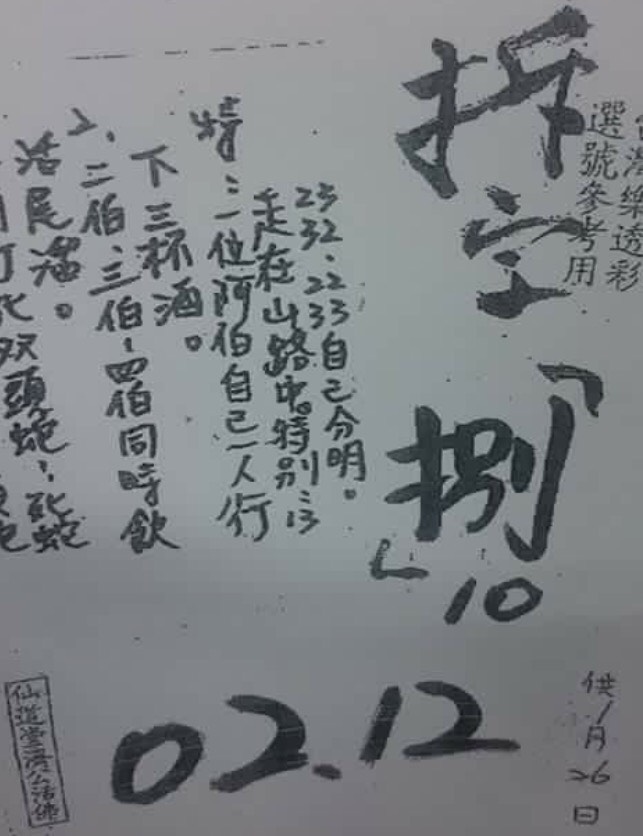 台灣樂透彩
選號參考用
拆字「捌」
10
23 32、22 33自己分明。
走在山路中特別:13
特:二位阿伯自己一人行
下三杯酒。
2、二伯、三伯、四伯同時飲
活尾溜。
打死双頭蛇、死蛇
供1月26日
02.12
仙道堂濟公活佛